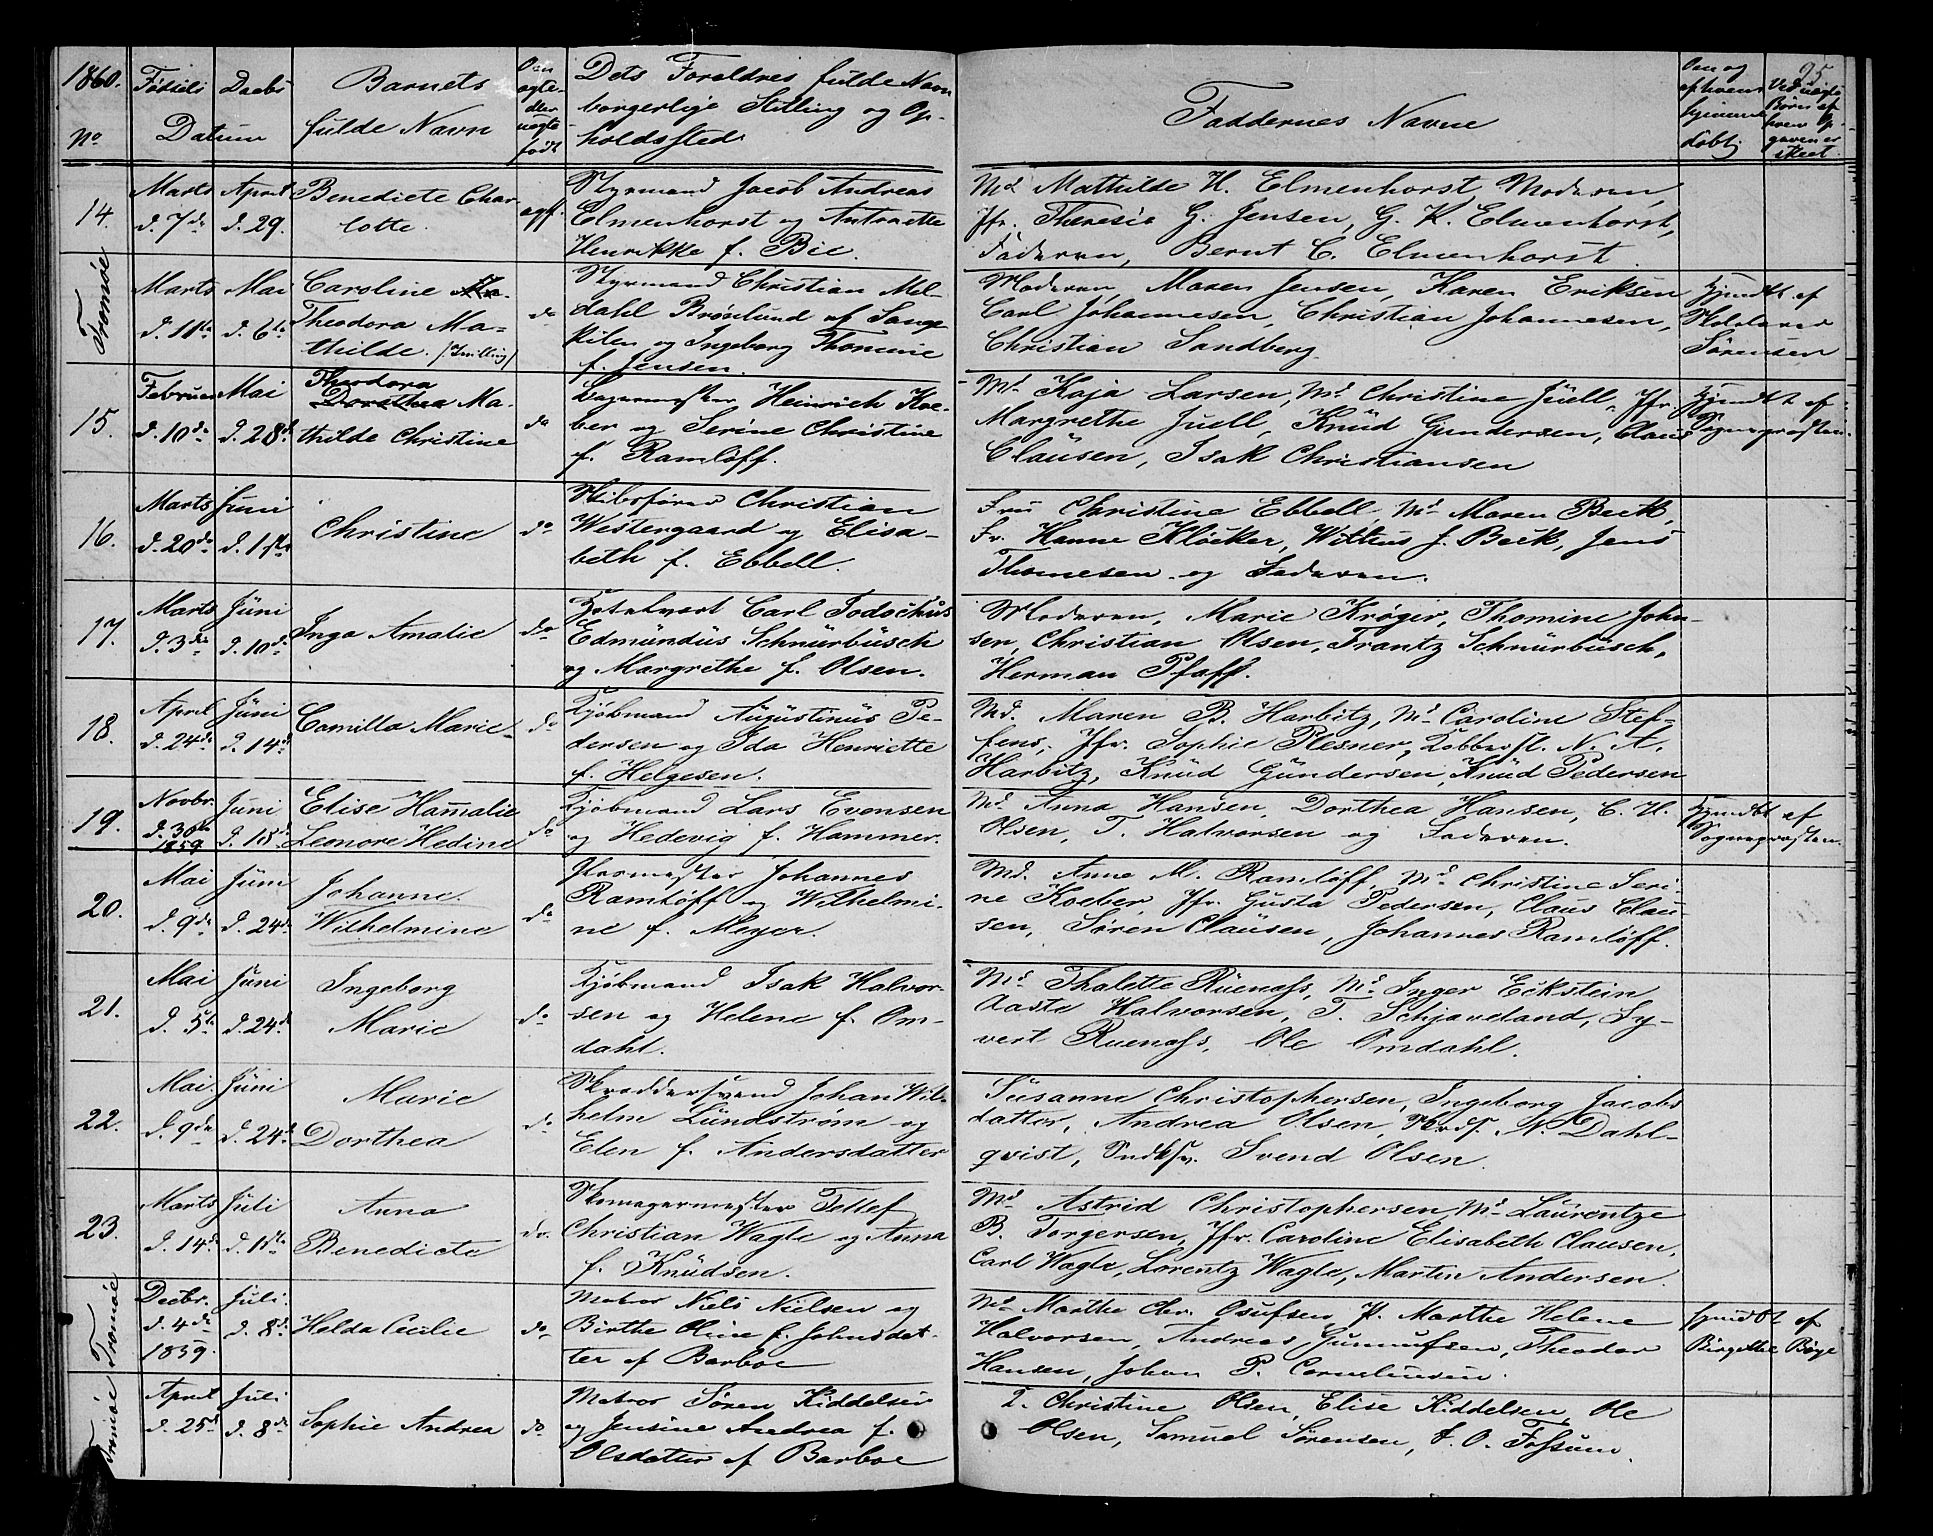 1860.
No
Fødsels Daabs
Datum
Barnets
fulde Navn
Om
ægte
eller
uægte
født
Dets Forældres fulde Navn
borgerlige Stilling og Op-
holdssted.
Faddernes Navne
Om og
af hvem
hjemme
døbt
95
Ved uægte
Børn af
hvem Op-
gaven er
skeet.
14.
Marts
d. 7de
April
d. 29.
Benedicte Char
lotte.
Styrmand Jacob Andreas
Elmenhorst og Antonette
Henrikke f. Bie.
Md Mathilde H. Elmenhorst Moderen,
Jfr. Theresie G. Jensen, G. K. Elmenhorst,
Faderen, Bernt C. Elmenhorst.
Tromøe
Marts
d. 11te
Mai
d. 6te
Caroline
Theodora Ma-
thilde. (Tvilling)
do
Styrmand Christian Mel-
dahl Brønlund af Songe
Kilen og Ingeborg Thomine
f. Jensen.
Moderen, Maren Jensen, Karen Eriksen
Carl Johannesen, Christian Johannesen,
Christian Sandberg
hjemdbt af
Sørensen
15.
Februar
d. 10de
Mai
d. 28d
Theodora
Dorothea Ma-
thilde Christine
do
Bagermester Heinrich Koe-
ber og Serine Christine
f. Ramløff.
Md Kaja Larsen, Md Christine Juell, Jfr
Margrethe Juell, Knud Gundersen, Claus
Clausen, Isak Christiansen
hjemdbt af
Sognepræsten.
16.
Marts
d. 20de
Juni
d. 1ste
Christine
do
Skibsfører Christian
Westergaard og Elisa-
beth f. Ebbell.
Fru Christine Ebbell, Md Maren Beck,
Fr. Hanne Kløcker, Wittus f. Beck, Jens
Thomesen og Faderen.
17.
Marts
d. 3die
Juni
d. 10de
Inga Amalie
do
Carl Jodochus
Edmundus Schnurbusch
og Margrethe f. Olsen.
Moderen, Marie Krøger, Thomine John-
sen, Christian Olsen, Frantz Schnurbusch,
Herman Pfaff.
18.
April
d. 24de
Juni
d. 14de
Camilla Marie
do
Kjøbmand Augustinus Pe-
dersen og Ida Henriette
f. Helgesen.
Md. Maren B. Harbitz, Md Caroline Stef-
fens, Jfr. Sophie Plesner, Kobbersl. N. A.
Harbitz, Knud Gundersen, Knud Pedersen
19.
Novbr.
d. 30te
1859
Juni
d. 18de
Elise Hamalie
Leonore Hedine
do
Kjøbmand Lars Evensen
og Hedevig f. Hammer.
Md. Anna Hansen, Dorthea Hansen, C. H.
Olsen, T. Halvorsen og Faderen.
hjemdbt af
Sognepræsten.
20.
Mai
d. 9de
Juni
d. 24de
Johanne
Wilhelmine
do
Johannes
Ramløff og Wilhelmi-
ne f. Meyer.
Md. Anne M. Ramløff, Md Christine Seri-
ne Koeber, Jfr. Gusta Pedersen, Claus Clau-
sen, Søren Clausen, Johannes Ramløff.
21.
Mai
d. 5te
Juni
d. 24de
Ingeborg
Marie
do
Kjøbmand Isak Halvor-
sen og Helene f. Om-
dahl.
Md Thalette Ruenæss, Md Inger Eckstein
Aaste Halvorsen, T. Schjaveland, Sy-
vert Ruenæss, Ole Omdahl.
22.
Mai
d. 9de
Juni
d. 24de
Marie
Dorthea
do
Skræddersvend Johan Wil-
helm Lundstrøm og
Elen f. Andersdatter
Susanne Christophersen, Ingeborg Jacobs
datter, Andrea Olsen, N. Dahl-
qvist, Svend Olsen.
23.
Marts
d. 14de
Juli
d. 1ste
Anna
Benedicte
do.
Skomagermester Tellef
Christian Wagle og Anna
f. Knudsen.
Md Astrid Christophersen Md Laurentze
B. Torgersen, Jfr. Caroline Elisabeth Clausen,
Carl Wagle, Lorentz Wagle, Martin Andersen.
Tromøe
Decbr.
d. 4de
1859.
Juli
d. 8de
Helda Cecilie
do
Matros Niels Nielsen og
Birthe Oline f. Johnsdat-
ter af Barboe
Md Marthe Chr. Osufsen, P. Marthe Helene
Halvorsen, Andreas Gunnufsen, Theodor
Hansen, Johan P. Corneliusen.
hjemdbt af
Birgethe Bøye
Tromøe
April
d. 25d
Juli
d. 8de
Sophie Andrea
do
Matros Søren Kiddelsen
og Jensine Andrea f.
Olsdatter af Barboe
2. Christine Olsen, Elise Kiddelsen, Ole
Olsen, Samuel Sørensen, F. O. Fossum.